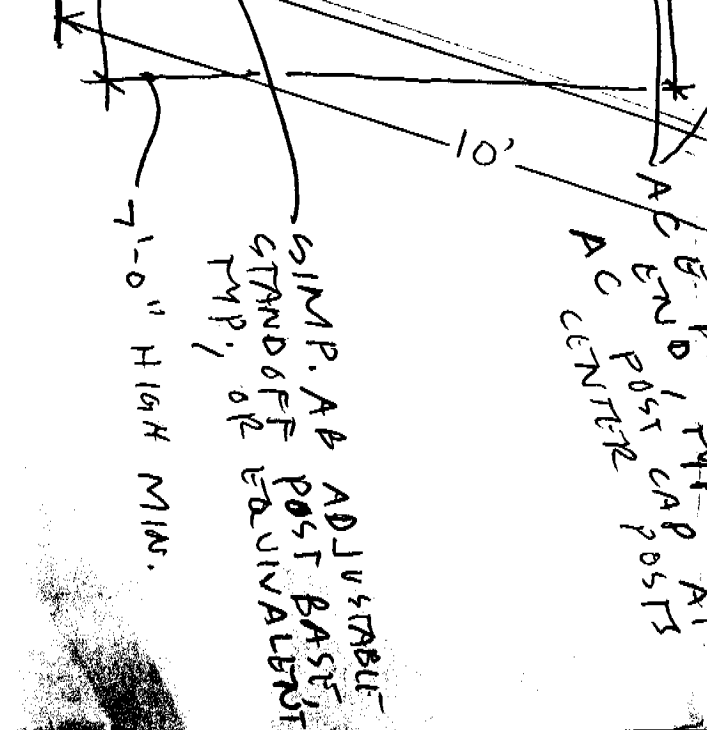 10'
ACE P
END, TYP.
AC POST CAP AT
CENTER POSTS
SIMP. AB ADJUSTABLE
STANDOFF POST BASE,
TYP, OR EQUIVALENT
7'-0" HIGH MIN.